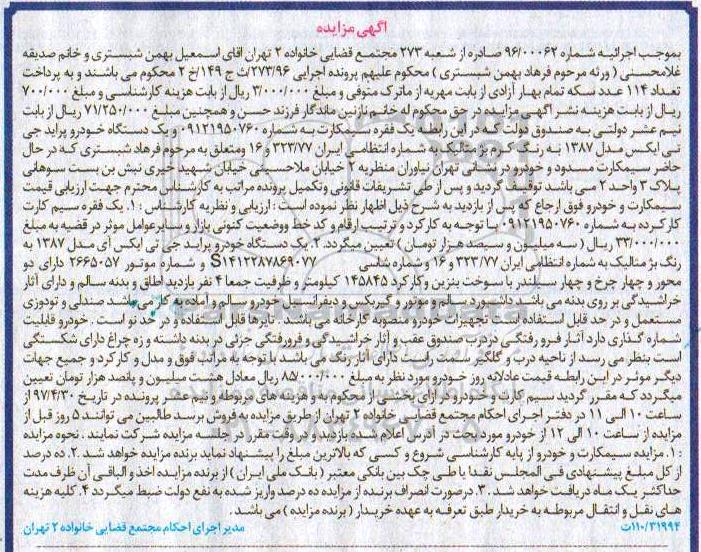 آگهی مزایده
بموجب اجرائیه شماره ۹۶/۰۰۰۶۲ صادره از شعبه ۲۷۳ مجتمع قضایی خانواده ۲ تهران اقای اسمعیل بهمن شبستری و خانم صدیقه
غلامحسنی ( ورثه مرحوم فرهاد بهمن شبستری ) محکوم علیهم پرونده اجرایی ۲۷۳/۹۶/ث ج ۱۴۹/خ ۲ محکوم می باشند و به پرداخت
تعداد ۱۱۴ عدد سکه تمام بهار آزادی از بابت مهریه از ماترک متوفی و مبلغ ۳/۰۰۰/۰۰۰ ریال از بابت هزینه کارشناسی و مبلغ ۷۰۰/۰۰۰
ریال از بابت هزینه نشر آگهی مزایده در حق محکوم له خانم نازنین ماندگار فرزند حسن و همچنین مبلغ ۷۱/۲۵۰/۰۰۰ ریال از بابت
نیم عشر دولتی به صندوق دولت که در این رابطه یک فقره سیمکارت به شماره ۰۹۱۲۱۹۵۰۷۶۰ و یک دستگاه خودرو پراید جی
تی ایکس مدل ۱۳۸۷ به رنگ بژ متالیک به شماره انتظامی ایران ۳۲۳/۷۷ و ۱۶ ومتعلق به مرحوم فرهاد شبستری که در حال
حاضر سیمکارت مسدود و خودرو در نشانی تهران نیاوران منظریه ۲ خیابان ملاحسینی خیابان شهید خیری نبش بن بست سوهانی
پلاک ۳ واحد ۲ می باشد توقیف گردید و پس از طی تشریفات قانونی وتکمیل پرونده مراتب به کارشناس محترم جهت ارزیابی قیمت
سیمکارت و خودرو فوق ارجاع که پس از بازدید به شرح ذیل اظهار نظر نموده است : ارزیابی و نظریه کارشناس : ۱. یک فقره سیم کارت
کارکرده به شماره ۰۹۱۲۱۹۵۰۷۶۰ با توجه به کارکرد و ترتیب ارقام و کد خط ووضعیت کنونی بازار و سایرعوامل موثر در قضیه به مبلغ
۳۳/۰۰۰/۰۰۰ ریال ( سه میلیون و سیصد هزار تومان ) تعیین میگردد. ۲. یک دستگاه خودرو پراید جی تی ایکس آی مدل ۱۳۸۷ به
رنگ بژ متالیک به شماره انتظامی ایران ۳۲۳/۷۷ و ۱۶ و شماره شاسی S۱۴۱۲۲۸۷۸۶۹۰۷۷ و شماره موتور ۲۶۶۵۰۵۷ دارای دو
محور و چهار چرخ و چهار سیلندر با سوخت بنزین وکارکرد ۱۴۵۸۴۵ کیلومتر و ظرفیت جمعا ۴ نفر بازدید اطاق و بدنه سالم و دارای آثار
خراشیدگی بر روی بدنه می باشد داشبورد سالم و موتور و گیربکس و دیفرانسیل خودرو سالم و آماده به کار می باشد صندلی و تودوزی
مستعمل و در حد قابل استفاده است تجهیزات خودرو منصوبه کارخانه می باشد . تایرها قابل استفاده و در حد نو است . خودرو قابلیت
شماره گذاری دارد آثار فرو رفتگی دردرب صندوق عقب و آثار خراشیدگی و فرورفتگی جزئی در بدنه داشته و زه چراغ دارای شکستگی
است بنظر می رسد از ناحیه درب و گلگیر سمت راست دارای آثار رنگ می باشد با توجه به مراتب فوق و مدل و کارکرد و جمیع جهات
دیگر موثر در این رابطه قیمت عادلانه روز خودرو مورد نظر به مبلغ ۸۵/۰۰۰/۰۰۰ ریال معادل هشت میلیون و پانصد هزار تومان تعیین
میگردد که مقرر گردید سیم کارت و خودرو در ازای بخشی از محکوم به و هزینه های مربوطه و نیم عشر پرونده در تاریخ ۹۷/۴/۳۰ از
ساعت ۱۰ الی ۱۱ در دفتر اجرای احکام مجتمع قضایی خانواده ۲ تهران از طریق مزایده به فروش برسد طالبین می توانند ۵ روز قبل از
مزایده از ساعت ۱۰ الی ۱۲ از خودرو مورد بحث در آدرس اعلام شده بازدید و در وقت مقرر در جلسه مزایده شرکت نمایند . نحوه مزایده
: ۱. مزایده سیمکارت و خودرو از پایه کارشناسی شروع و کسی که بالاترین مبلغ را پیشنهاد نماید برنده مزایده خواهد شد . ۲. ده درصد
از کل مبلغ پیشنهادی فی المجلس نقدا یا طی چک بین بانکی معتبر ( بانک ملی ایران ) از برنده مزایده اخذ و الباقی آن ظرف مدت
حداکثر یک ماه دریافت خواهد شد . ۳. درصورت انصراف برنده از مزایده ده درصد واریز شده به نفع دولت ضبط میگردد ۴. کلیه هزینه
های نقل و انتقال مربوطه به خریدار طبق تعرفه به عهده خریدار ( برنده مزایده ) می باشد .
۱۱۰/۳۱۹۹۴/ت مدیر اجرای احکام مجتمع قضایی خانواده ۲ تهران